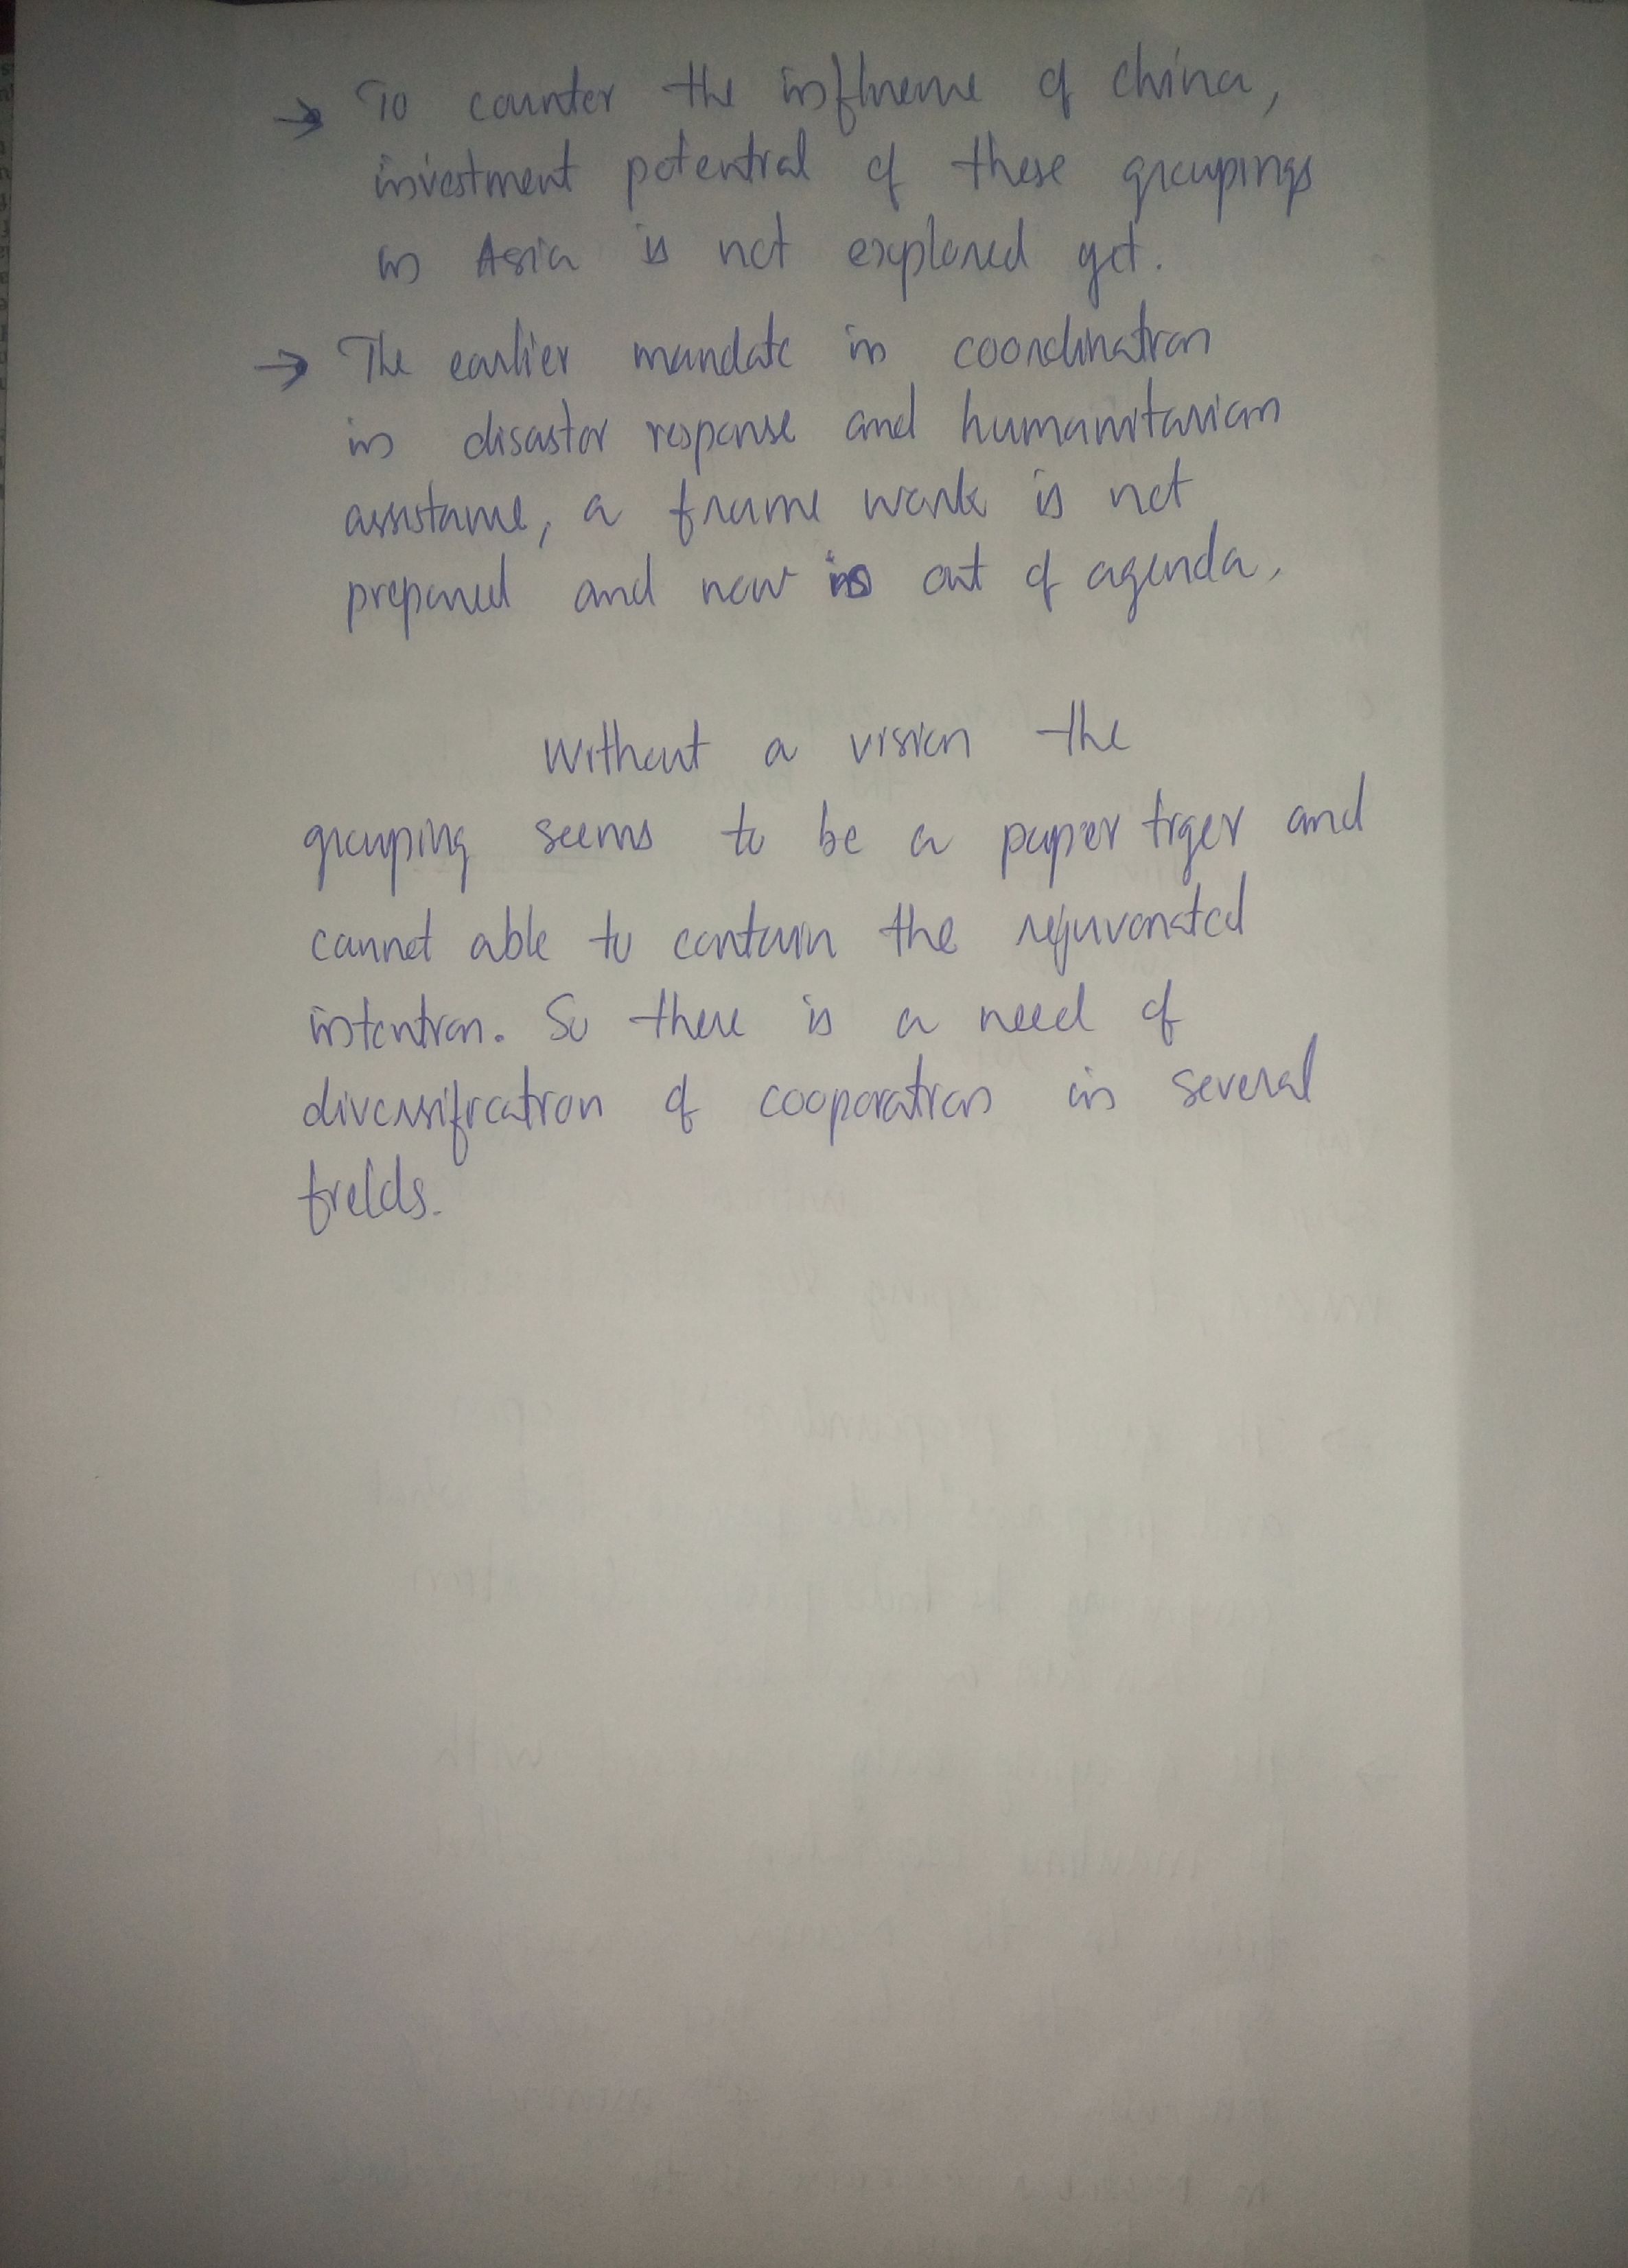 → To counter the influence of china,
investment potential of these groupings
in Asia is not explored yet.
→ The earlier mandate in coordination
in disaster response and humanitarian
assistance, a frame work is not
prepared and now is out of agenda.
Without a vision the
grouping seems to be a paper tiger and
cannot able to contain the rejuvonated
intention. So there is a need of
diversification of cooporation in several
fields.